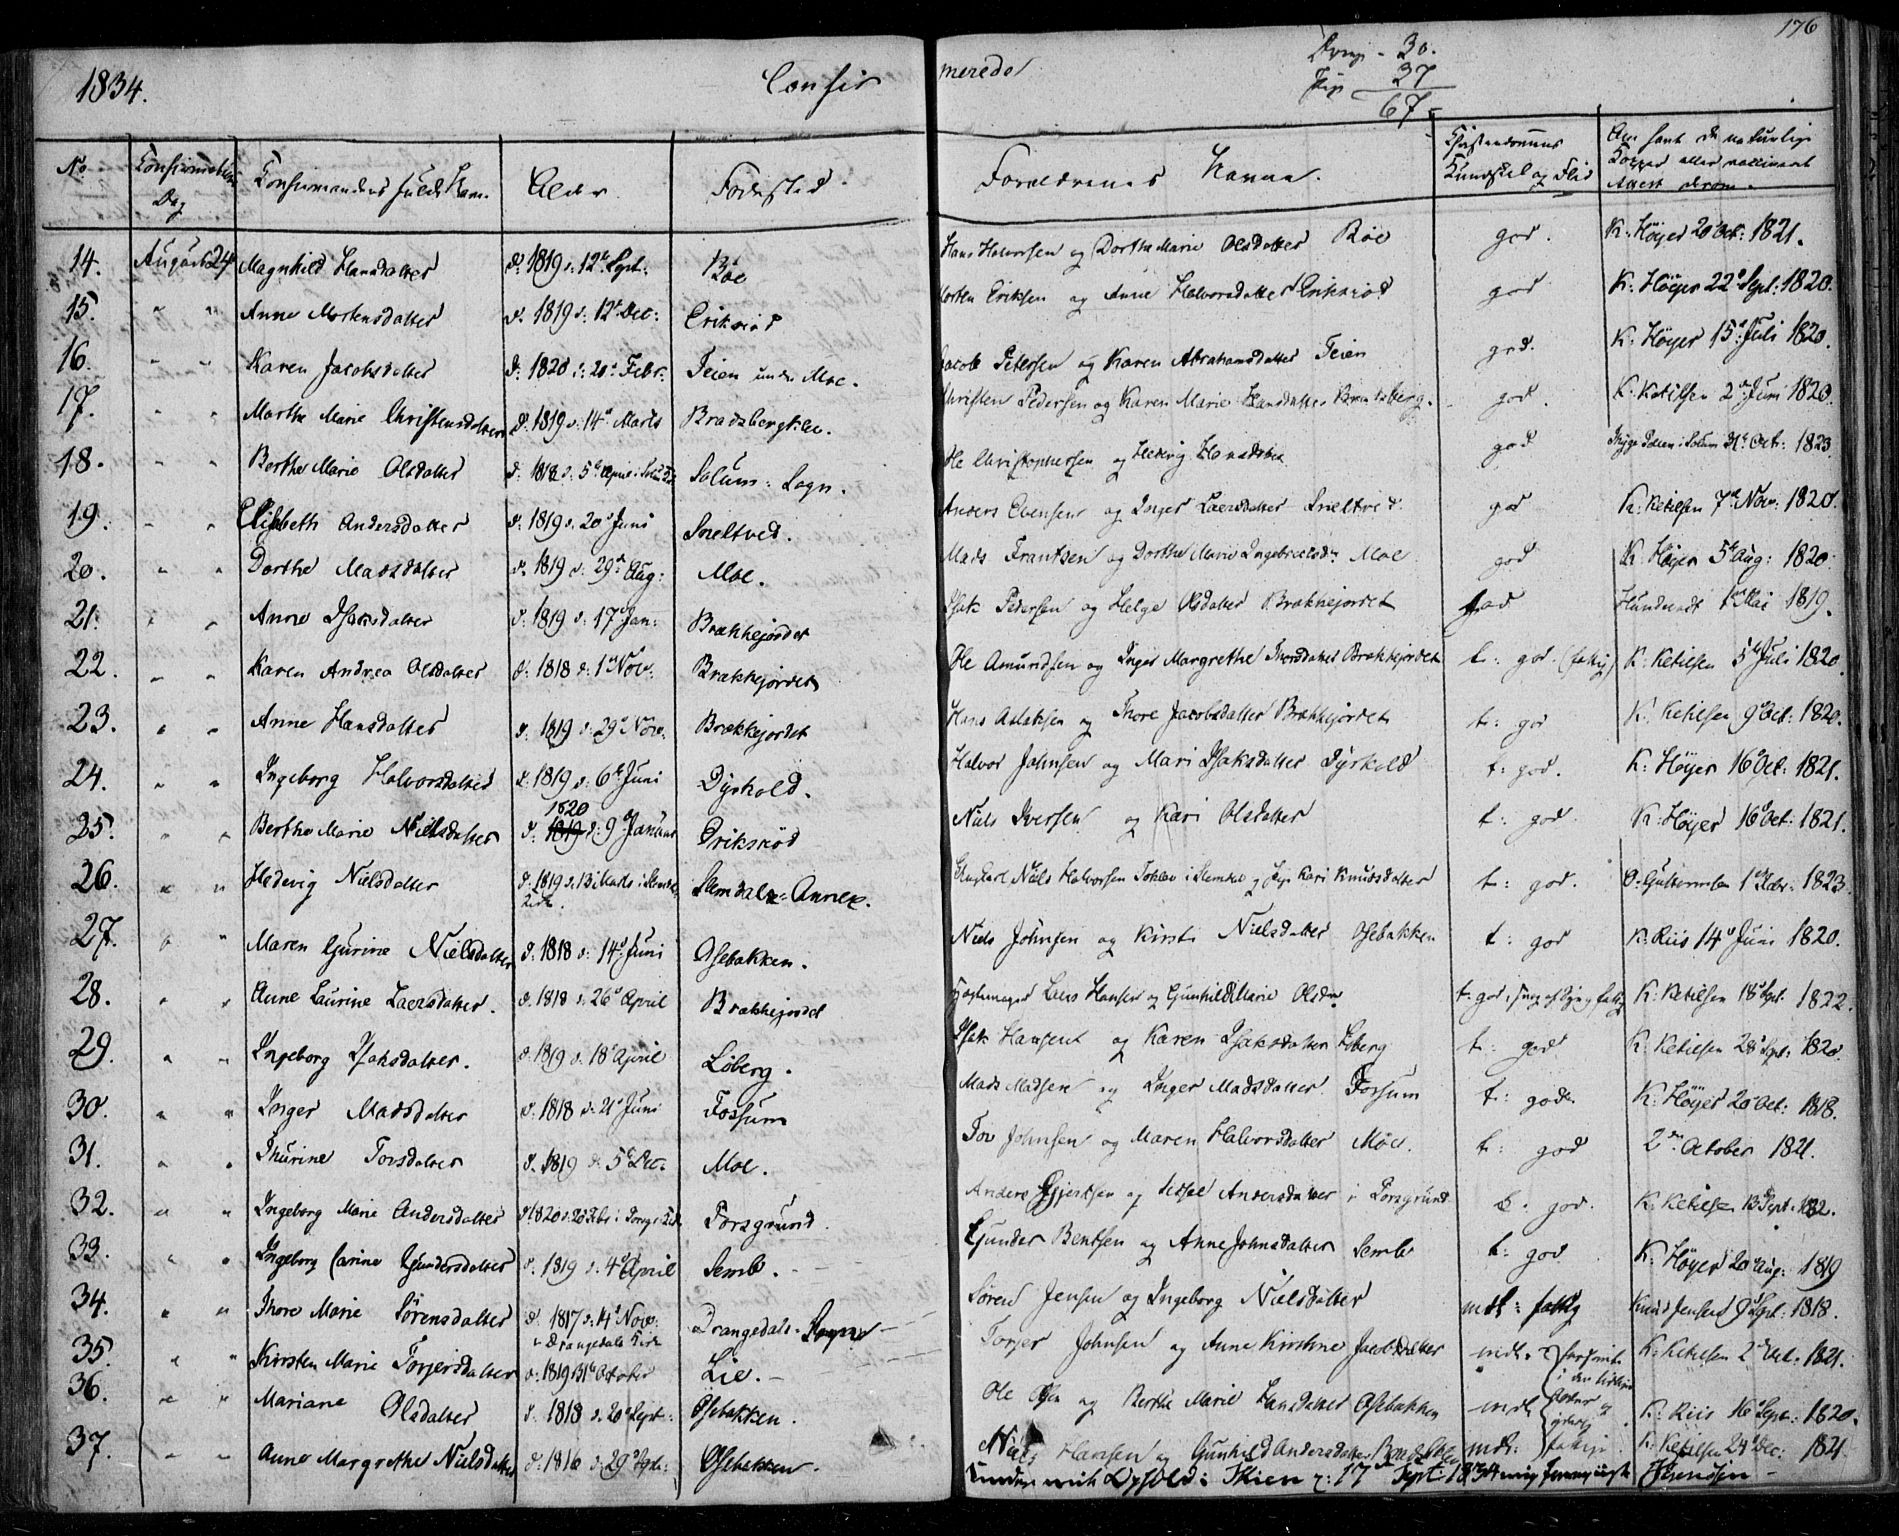 1834. Confir merede 176
Drenge - 30.
Piger 37
67
No Confirmations Dag Alder Fødested Forældrenes Navne. Christendoms Kundskab og Flid
14. August 24 Magnhild Hansdatter d: 1819 d: 12t Sept: Böe Hans Halvorsen og Dorthe Marie Olsdatter Böe god. K. Höyer 20 Oct: 1821.
15. " " Anne Mortensdatter d. 1819 d: 12t Dec: Eriksröd Morten Eriksen og Anne Halvorsdatter Eriksröd god K. Höyer 22d Sept: 1820.
16. " " Karen Jacobsdatter d: 1820 d: 20d Febr: Feien under Moe. Jacob Petersen og Karen Abrahamsdatter Feien god. K. Höyer 15d Juli 1820.
17. " " Marthe Marie Christensdatter d: 1819 d: 14d Marts Bradsbergklev. Christen Pedersen og Karen Marie Hansdatter god. K. Ketilsen 2d Juni 1820.
18. " " Berthe Marie Olsdatter d: 1818 d: 5t April i Solum Kirke Solum: Sogn. Ole Christophersen og Hedevig Hansdatter god i Solum 31t Oct: 1823.
19. " " Elisbeth Andersdatter d: 1819 d: 20d Juni Sneltved. Anders Evensen og Inger Laersdatter Sneltved. god K. Ketilsen 7d Nov: 1820.
20. " " Dorthe Madsdatter d. 1819 d: 29d Aug: Moe. Mads Frantsen og Dorthe Marie Ingebretsdr Moe god K. Höyer 5t Aug: 1820.
21. " " Anne Isaksdatter d: 1819 d: 17d Jan: Brækkejordet Isak Pedersen og Helge Olsdatter Brækkejordet god Hundevadt Mai 1819.
22. " " Karen Andrea Olsdatter d: 1818 d: 1d Nov: Brækkejordet Ole Amundsen og Inger Margrethe Thorsdatter Brækkejordet t: god (fattig) K: Ketilsen 5t Juli 1820
23. " " Anne Hansdatter d: 1819 d: 29d Nov: Brækkejordet Hans Aslaksen og Thore Jacobsdatter Brækkejordet t: god K. Ketilsen 9d Oct: 1820.
24. " " Ingeborg Halvorsdatter d: 1819 d: 6t Juni Dyrkold. Halvor Johnsen og Mari Isaksdatter Dyrkold t: god. K: Höyer 16d Oct: 1821.
25. " " Berthe Marie Nielsdatter d: 1819 1820 d: 9d Januar Eriksröd Niels Iversen og Kari Olsdatter t: god. K: Höyer 16d Oct: 1821.
26. " " Hedevig Nielsdatter d: 1819 d. 13 Marts i Slemdals Kirke Slemdals: Annex. Niels Halvorsen i Slemdal og Kari Knudsdatter t: god. 1823.
27. " " Maren Gurine Nielsdatter d. 1818 d: 14d Juni Osebakken. Niels Johnsen og Kirsti Nielsdatter Osebakken t: god K. Riis 14d Juni 1820.
28. " " Anne Laurine Laersdatter. d. 1818 d. 26d April Brækkejordet Laers Hansen og Gunhild Marie Olsdr K: Ketilsen 18d Sept: 1822.
29. " " Ingeborg Isaksdatter. d: 1819 d. 18d April Löberg. Isak Hansen og Karen Isaksdatter Löberg t: god K. Ketilsen 28d Sept: 1820.
30. " " Inger Madsdatter d. 1818 d: 21d Juni Fossum Mads Madsen og Inger Madsdatter Fossum t: god. K. Höyer 20 Oct: 1818.
31. " " Thurine Torsdatter d. 1819 d. 5t Dec: Moe. Tov Johnsen og Maren Halvorsdatter Moe. t: god 2d October 1821.
32. " " Ingeborg Marie Andersdatter d. 1820 Porsgrund. Anders Gjertsen og Sidsel Andersdatter i Porsgrund t: god. K. Ketilsen 13 Sept.
33. " " Ingeborg Carine Gundersdatter d. 1819 d. 4d April Semb. Gunder Bentsen og Anne Johnsdatter Semb t: god K. Höyer 20 Aug: 1819
34. " " Thore Marie Sörensdatter d. 1817 d: 14d Nov: i Drangedals Kirke Drangedals: Sogn Sören Jensen og Ingeborg Nielsdatter mdl: fattig Knud Jensen Sept: 1818.
35. " " Kirsten Marie Torjersdatter d: 1819 31t October Lie. Torjer Johnsen og Anne Kirstine Jacobsdatter mdl. K. Ketilsen 2d Oct: 1821.
36. " " Mariane Olsdatter d. 1818 d. 20d Sept: Osebakken. Ole Olsen og Berthe Marie Hansdatter Osebakken mdl. K: Riis 16d Sept: 1820.
37. " " Anne Margrethe Nielsdatter d: 1816 d. 29d Sept: Osebakken. Niels Hansen og Gunhild Andersdatter mdl: K. Ketilsen 24d Dec: 1821.
Skien d: 17 Sept: 1834